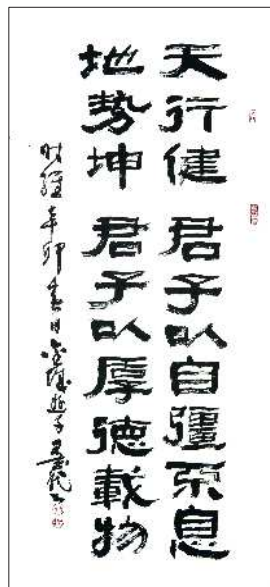 天行健 君子以自彊不息
地势坤 君子以厚德載物
时維辛卯春日